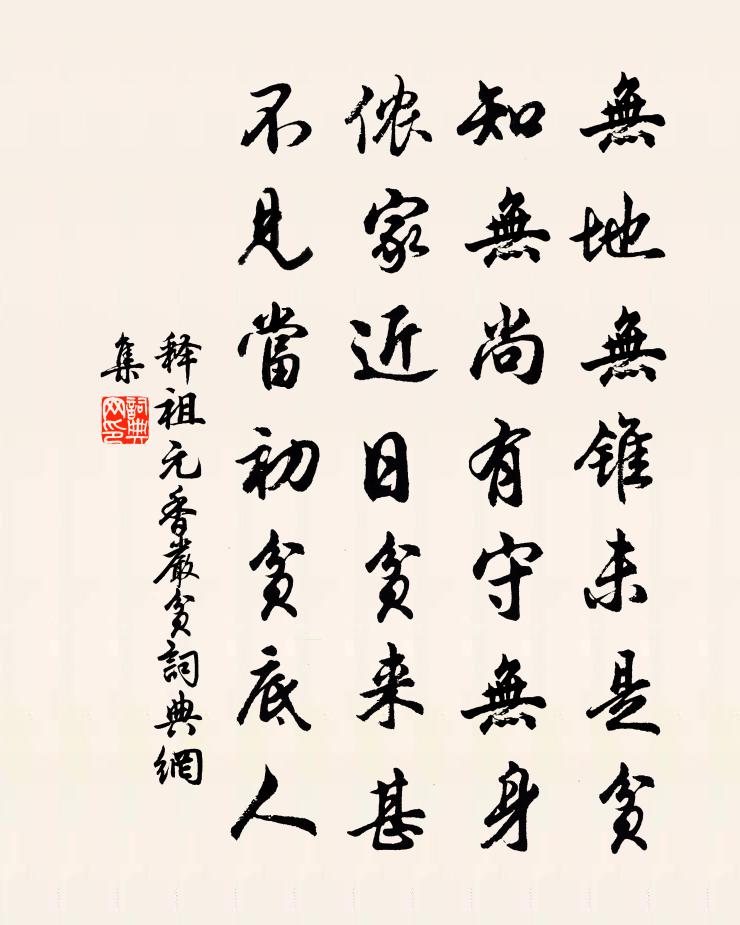 無地無錐未是貧
知無尚有守無身
侬家近日貧来甚
不見當初貧底人
释祖元香嚴貧詞典網
集
詞典
网印